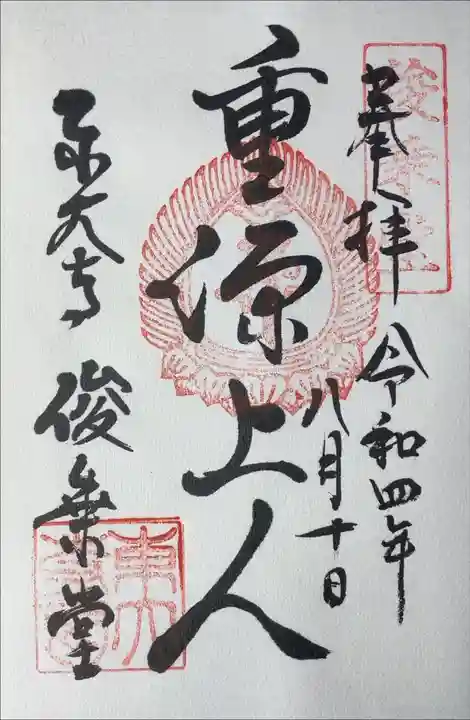 奉拝
令和四年
八月十日
重源上人
東大寺 俊乗堂